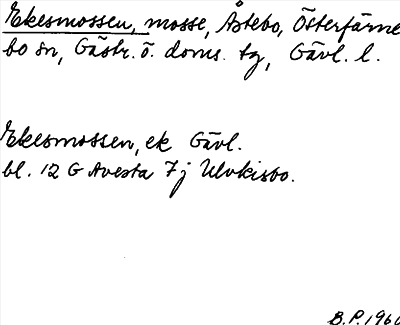 Ekesmossen, mosse, Åstebo, Österfärne
bo sn, Gästr. ö. doms. tg, Gävl. l.
Ekesmossen, ek Gävl.
bl. 12 G Avesta 7j Ulvkisbo.
B.P. 1960